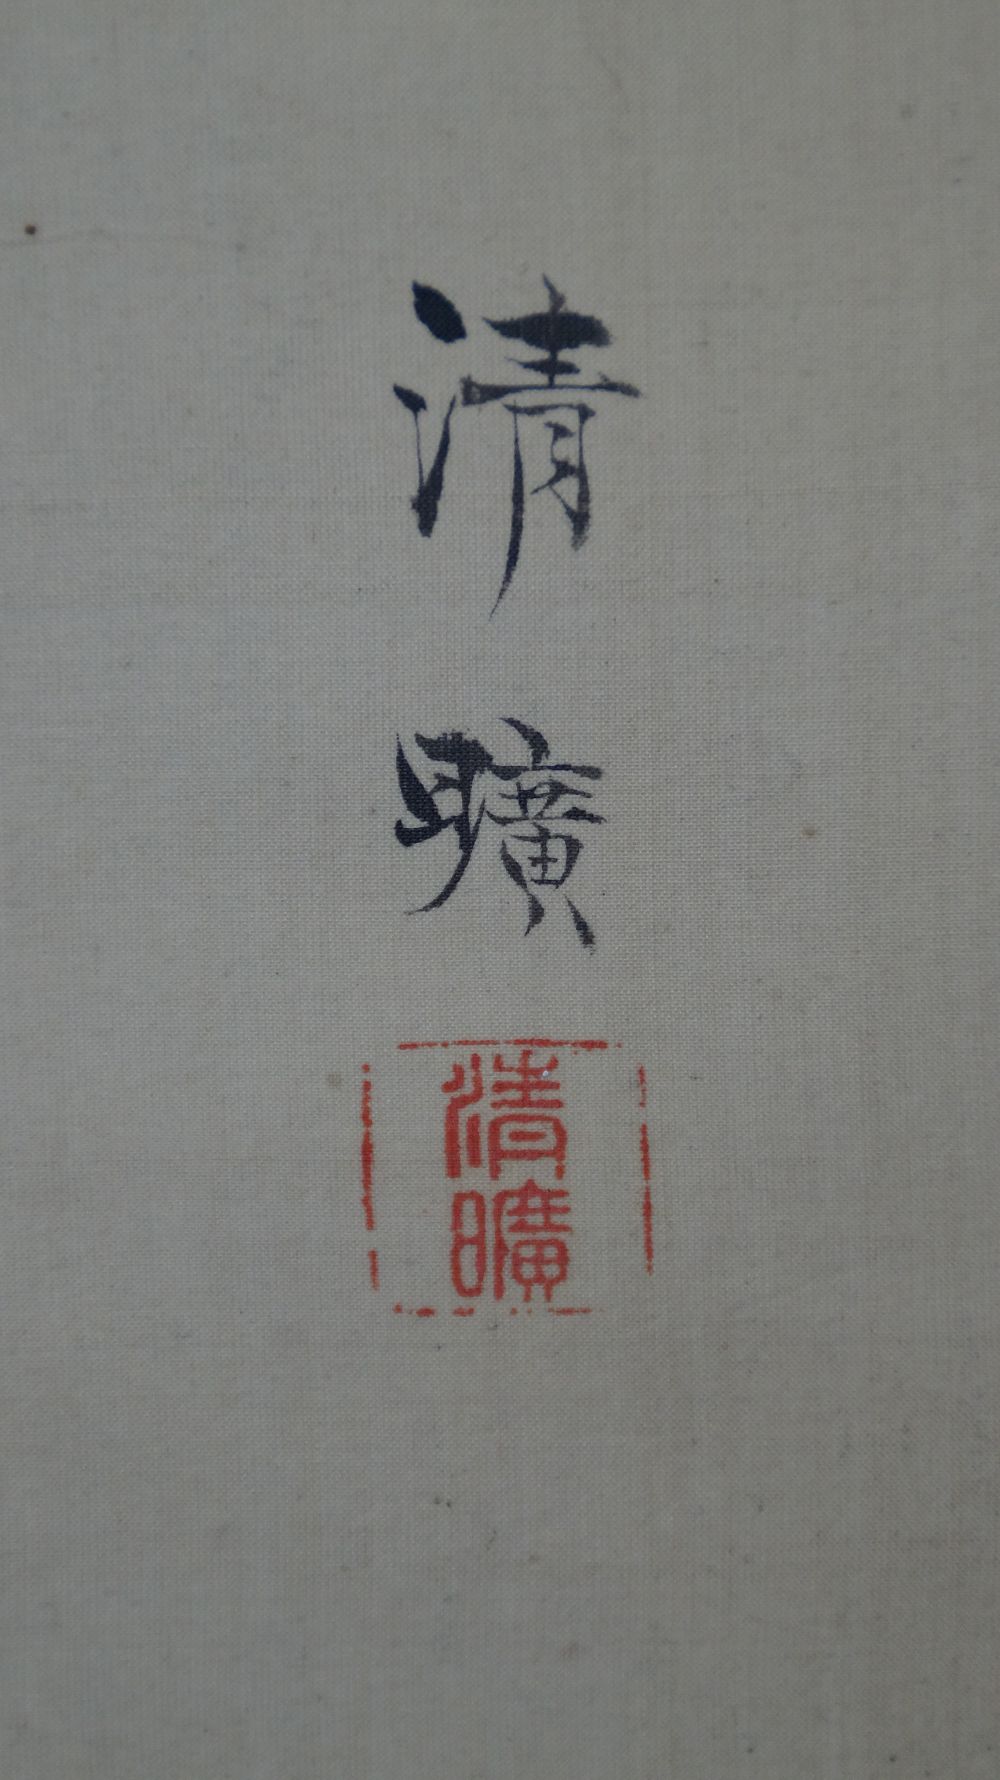 清
曠
清
曠